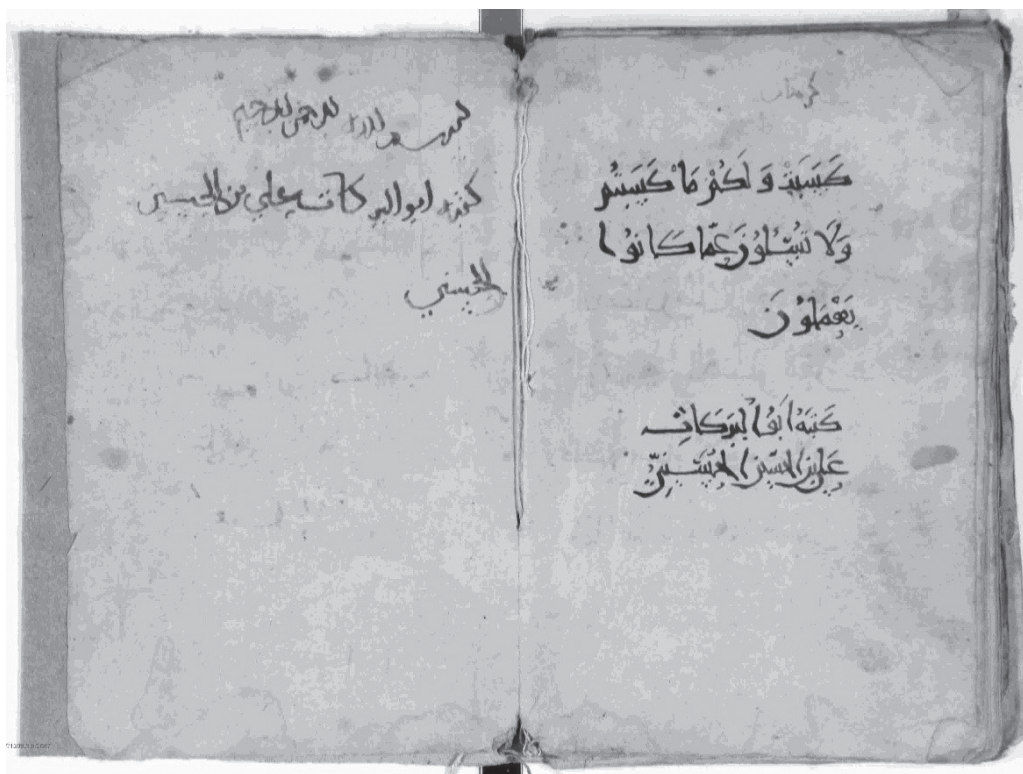 كَسَبَتْ وَلَكُمْ مَا كَسَبْتُم
وَلَا تُسْئَلُونَ عَمَّا كَانُوْا
يَعْمَلُوْنَ
كَتَبَهُ اَبُو البَرَكَاتِ
عَلِي بن الحُسَيْن الحُسَيْنِيّ
بسم الله الرحمن الرحيم
كتبه ابو البركات علي بن الحسين
الحسيني